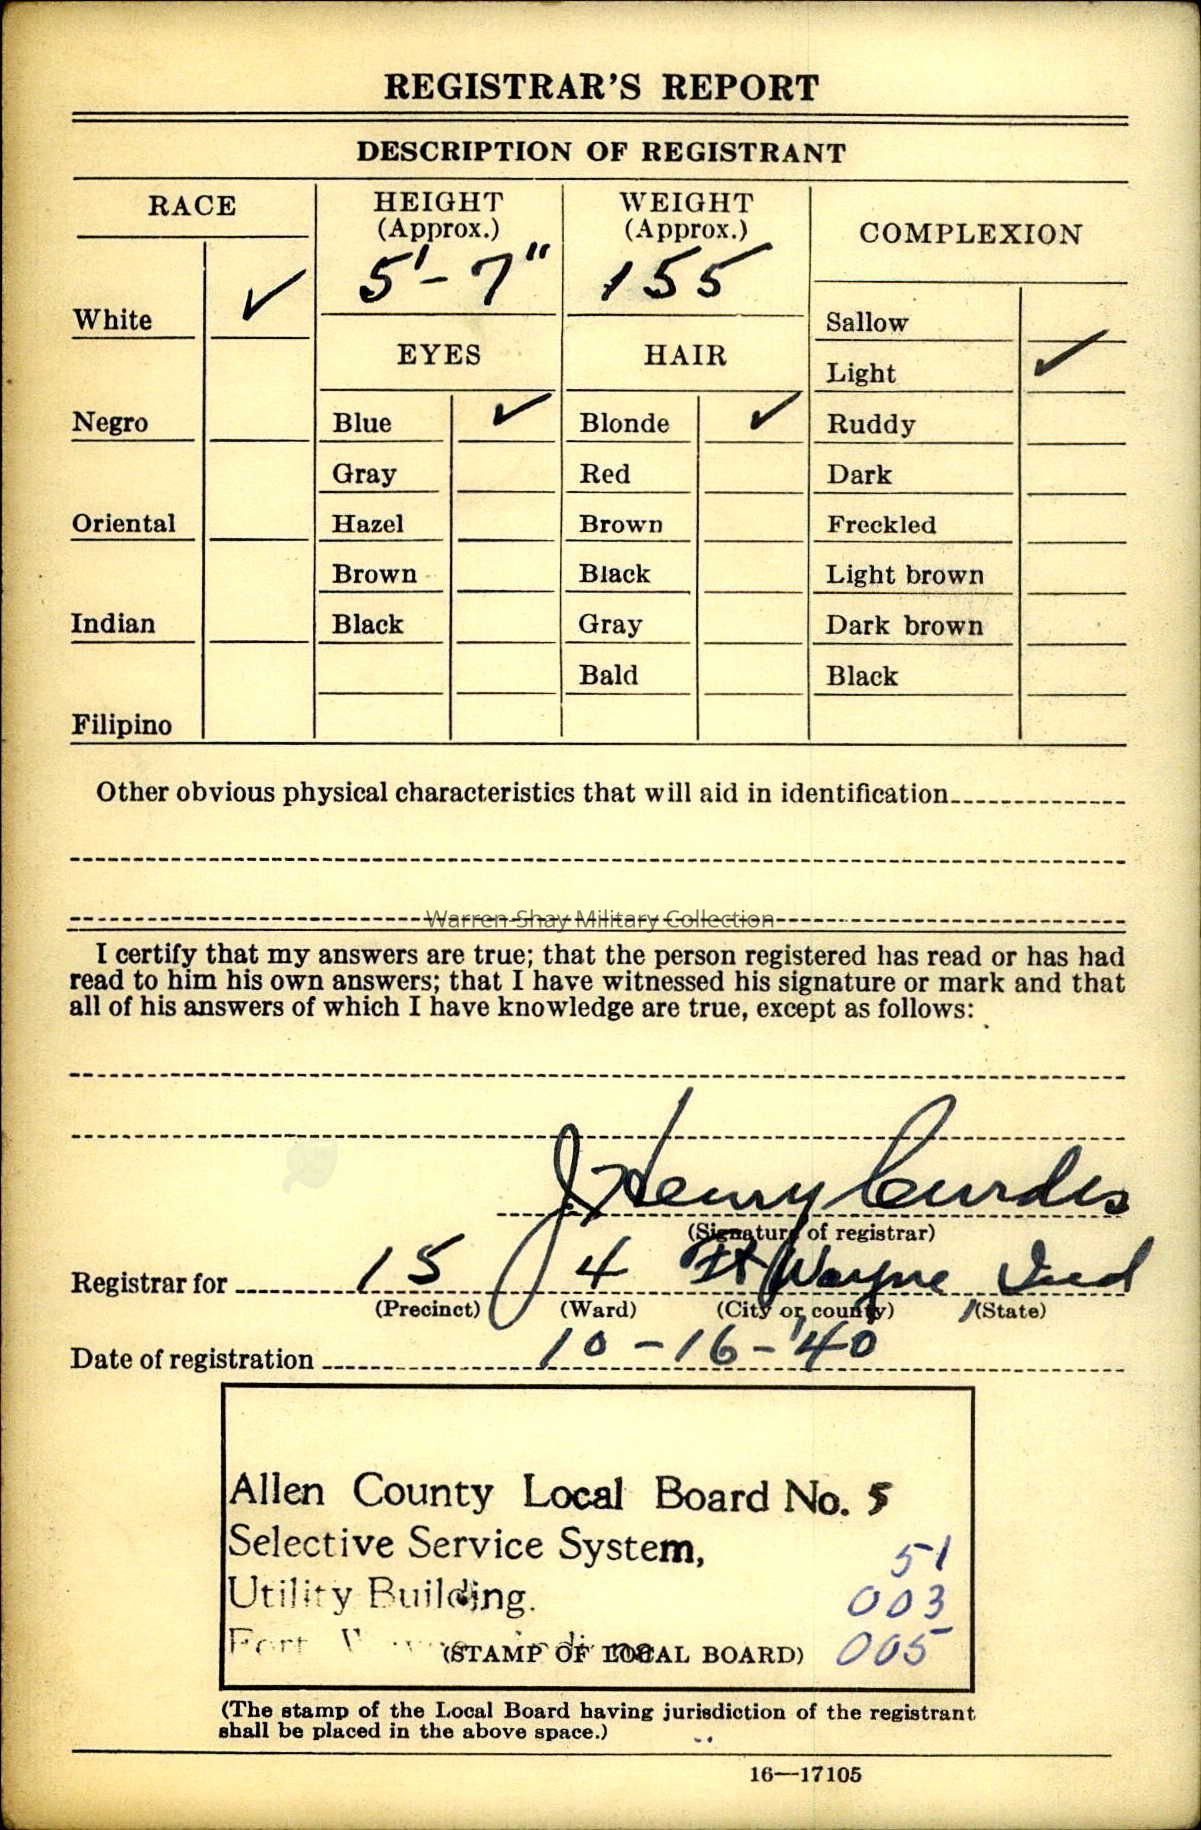 REGISTRAR'S REPORT
DESCRIPTION OF REGISTRANT
RACE
HEIGHT
(Approx.)
5'-7"
WEIGHT
(Approx.)
155
COMPLEXION
White ✓
Negro
Oriental
Indian
Filipino
EYES
Blue ✓
Gray
Hazel
Brown
Black
HAIR
Blonde ✓
Red
Brown
Black
Gray
Bald
Sallow
Light ✓
Ruddy
Dark
Freckled
Light brown
Dark brown
Black
Other obvious physical characteristics that will aid in identification
Warren-Shay Military Collection
I certify that my answers are true; that the person registered has read or has had
read to him his own answers; that I have witnessed his signature or mark and that
all of his answers of which I have knowledge are true, except as follows:
J. Henry
(Signature of registrar)
Registrar for 15 4 Ft Wayne, Ind
(Precinct) (Ward) (City or county) (State)
Date of registration 10-16-'40
Allen County Local Board No. 5
Selective Service System,
51
Utility Building.
003
Fort Wayne, Indiana
(STAMP OF LOCAL BOARD) 005
(The stamp of the Local Board having jurisdiction of the registrant
shall be placed in the above space.)
16—17105